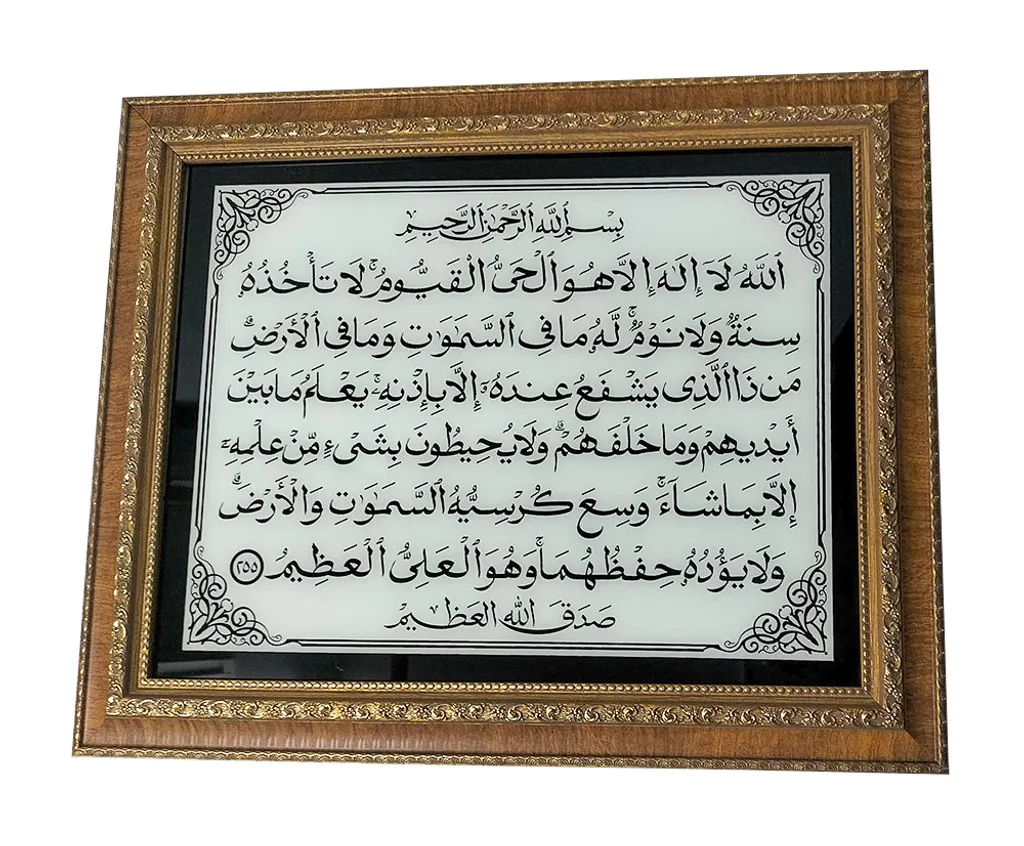 بِسْمِ ٱللَّهِ ٱلرَّحْمَٰنِ ٱلرَّحِيمِ
ٱللَّهُ لَآ إِلَٰهَ إِلَّا هُوَ ٱلْحَىُّ ٱلْقَيُّومُ ۚ لَا تَأْخُذُهُۥ
سِنَةٌ وَلَا نَوْمٌ ۚ لَّهُۥ مَا فِى ٱلسَّمَٰوَٰتِ وَمَا فِى ٱلْأَرْضِ ۗ
مَن ذَا ٱلَّذِى يَشْفَعُ عِندَهُۥٓ إِلَّا بِإِذْنِهِۦ ۚ يَعْلَمُ مَا بَيْنَ
أَيْدِيهِمْ وَمَا خَلْفَهُمْ ۖ وَلَا يُحِيطُونَ بِشَىْءٍ مِّنْ عِلْمِهِۦٓ
إِلَّا بِمَا شَآءَ ۚ وَسِعَ كُرْسِيُّهُ ٱلسَّمَٰوَٰتِ وَٱلْأَرْضَ ۖ
وَلَا يَـُٔودُهُۥ حِفْظُهُمَا ۚ وَهُوَ ٱلْعَلِىُّ ٱلْعَظِيمُ ٢٥٥
صَدَقَ اللّٰه العَظِيمْ